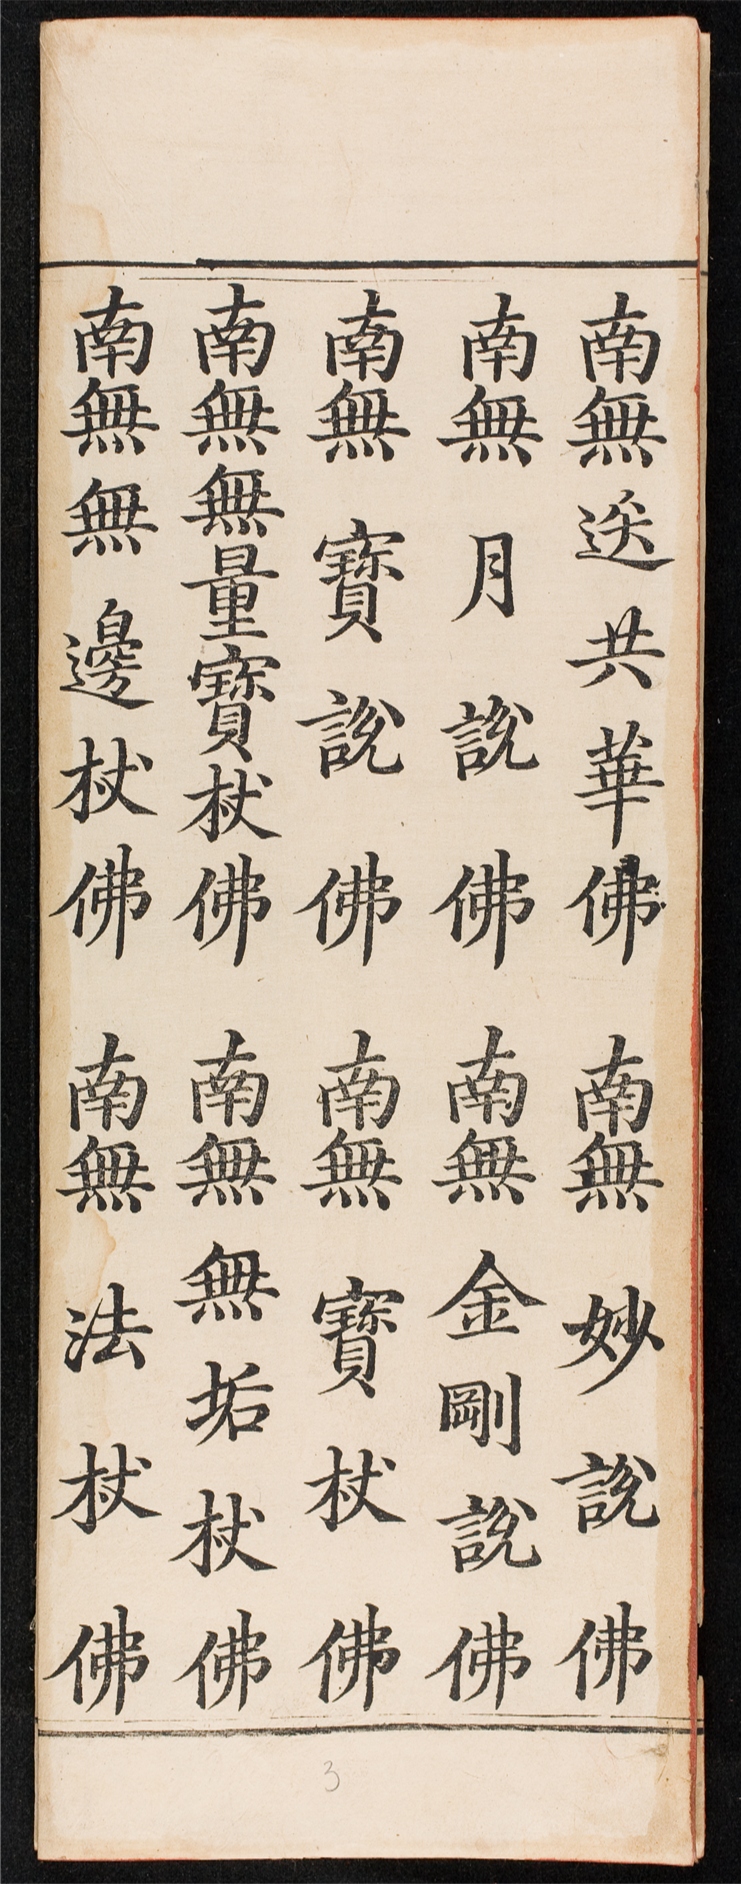 南無送共華佛 南無妙說佛
南無月說佛 南無金剛說佛
南無寶說佛 南無寶杖佛
南無無量寶杖佛 南無無垢杖佛
南無無邊杖佛 南無法杖佛
3